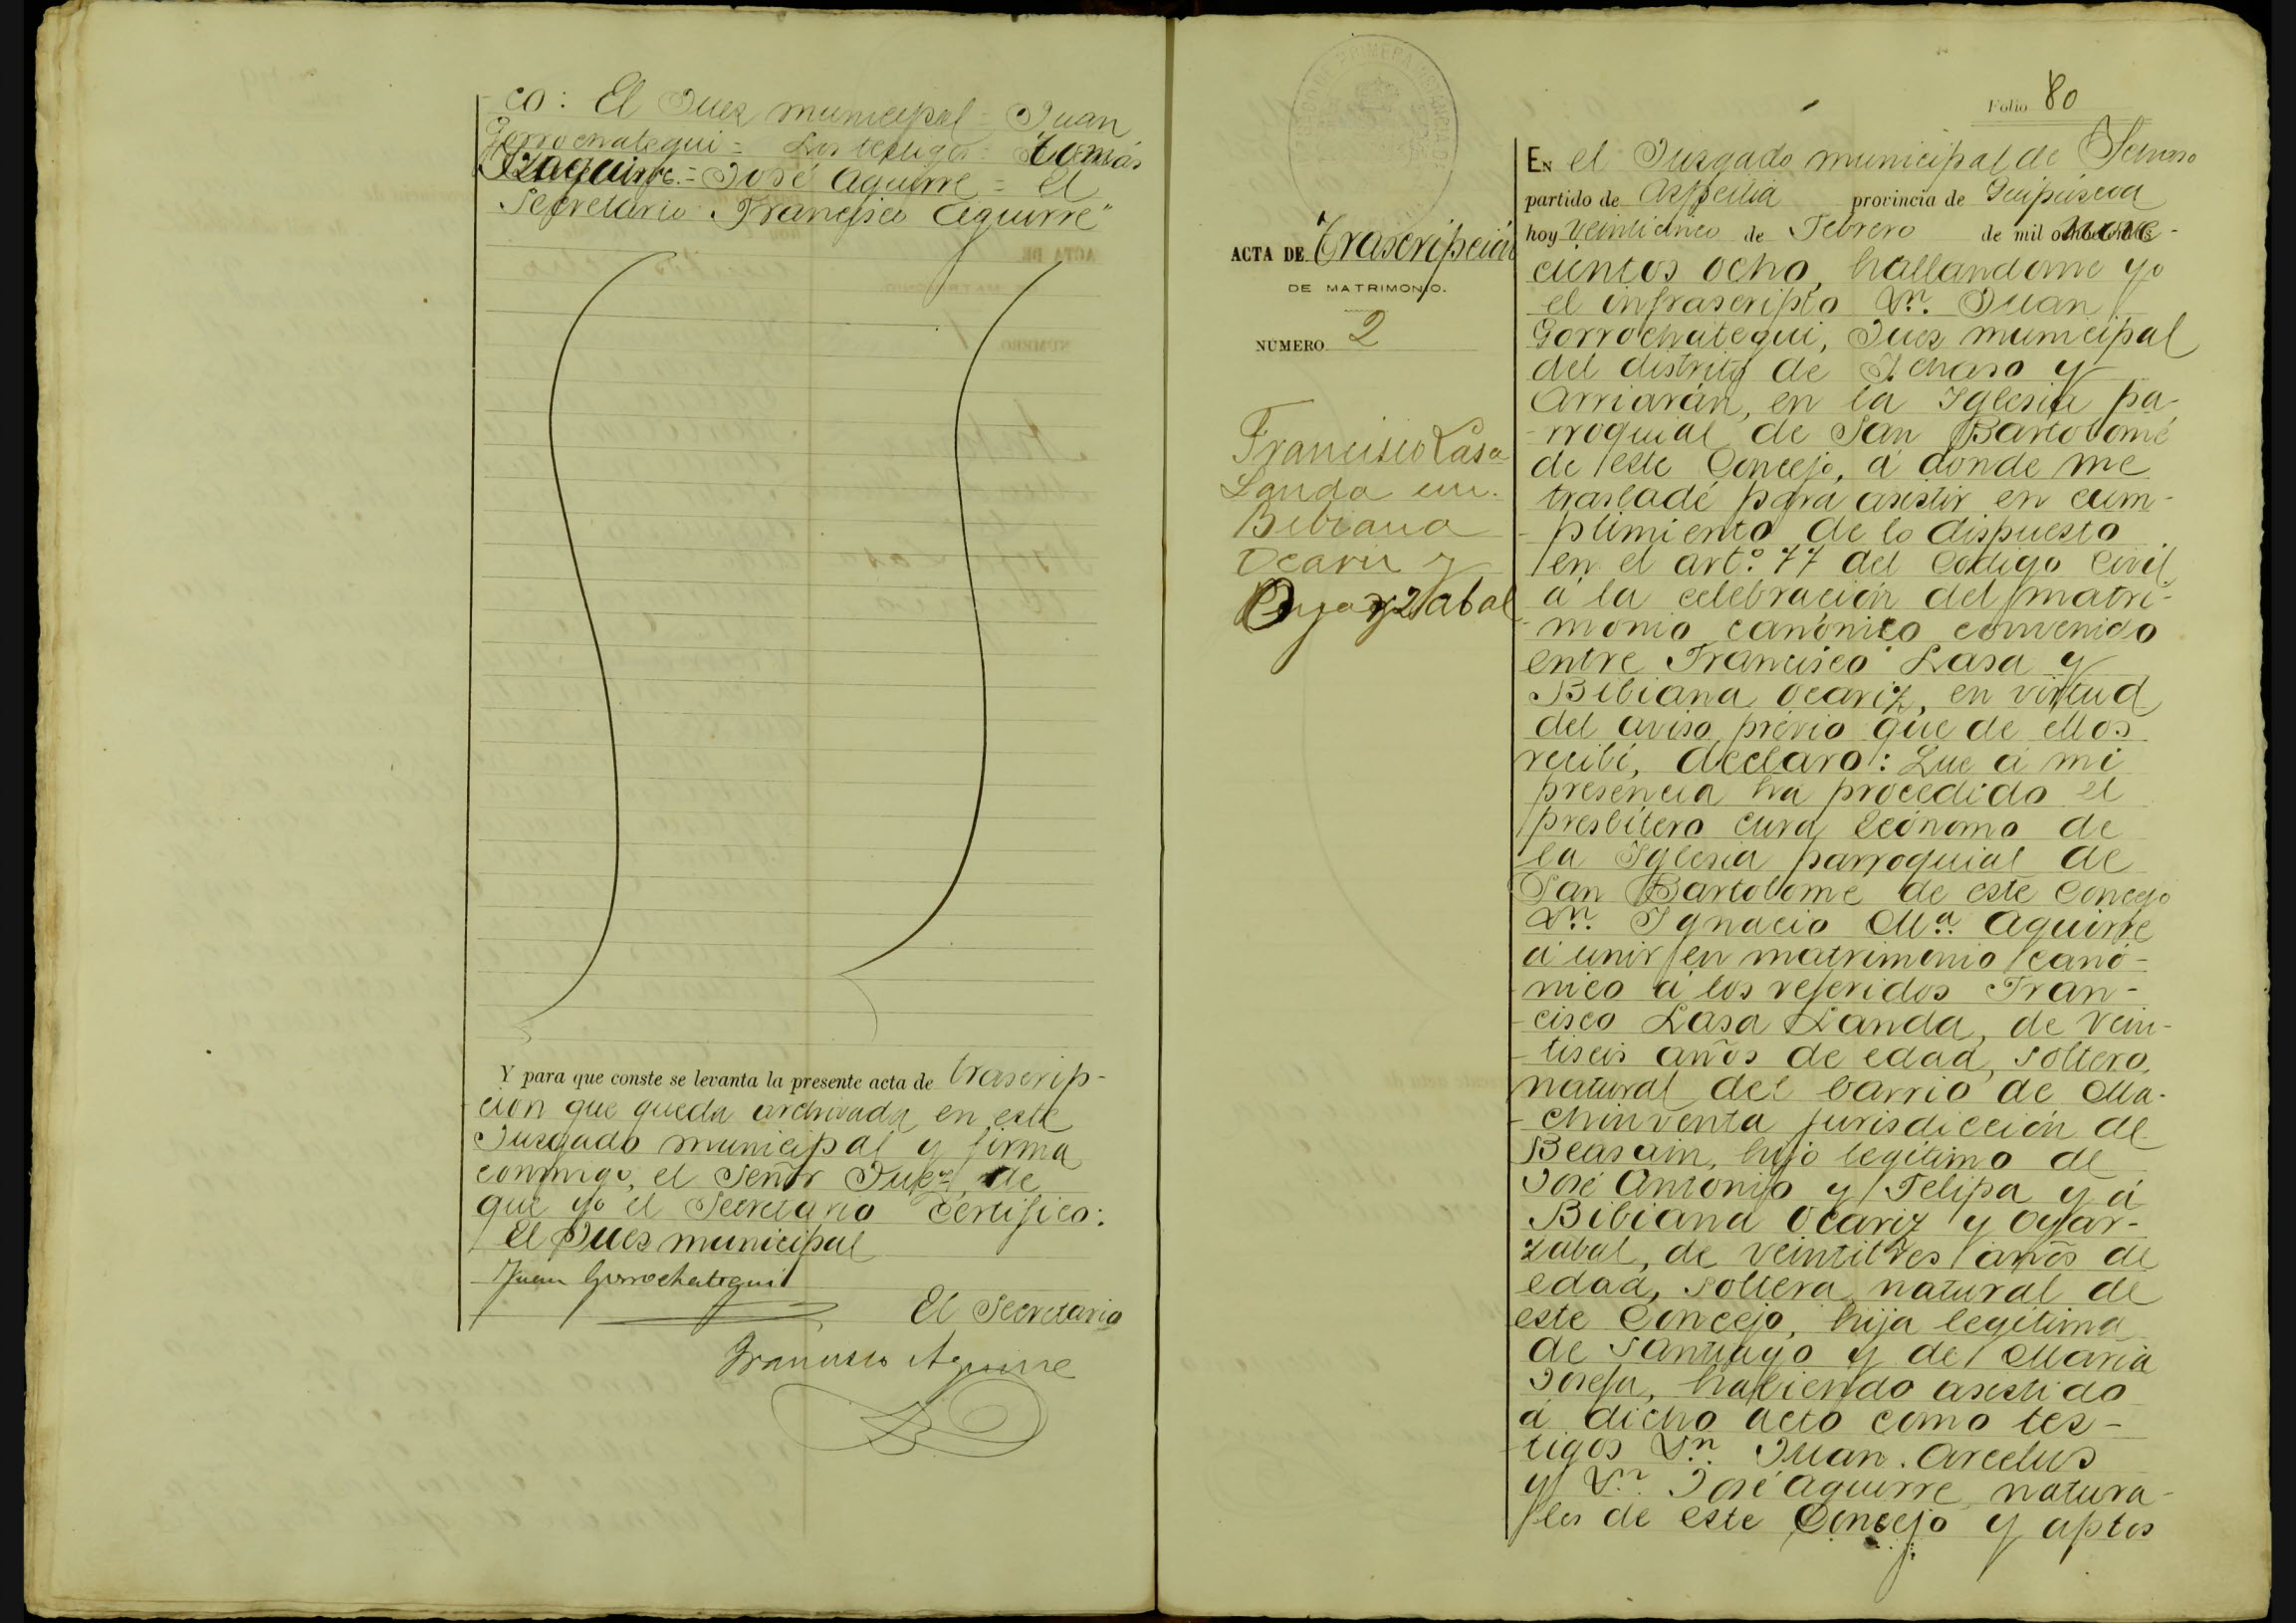 co: El Juez municipal = Juan
Gorrochategui = Los testigos: Tomás
Izaguirre. = José Aguirre = El
Secretario Francisco Aguirre"
Y para que conste se levanta la presente acta de trascrip-
ción que queda archivada en este
Juzgado municipal y firma
conmigo, el Señor Juez, de
que yo el Secretario certifico:
El Juez municipal
Juan Gorrochategui
El Secretario
Francisco Aguirre
ACTA DE Trascripción
DE MATRIMONIO.
NÚMERO 2
Francisco Lasa
Landa
Bibiana
Ocariz y
Oyarzabal
Folio 80
EN el Juzgado municipal de Ichaso
partido de Azpeitia provincia de Guipúzcoa
hoy veinticinco de Febrero de mil nove-
cientos ocho, hallandome yo
el infrascripto Dn. Juan
Gorrochategui, Juez municipal
del distrito de Ichaso y
Arriarán, en la Iglesia pa-
-rroquial de San Bartolomé
de este Concejo, á donde me
trasladé para asistir en cum-
-plimiento de lo dispuesto
en el artº. 77 del Codigo Civil
á la celebración del matri-
-monio canónico convenido
entre Francisco Lasa y
Bibiana Ocariz, en virtud
del aviso previo que de ellos
recibí, declaro: Que á mi
presencia ha procedido el
presbítero cura Ecónomo de
la Iglesia parroquial de
San Bartolome de este Concejo
Dn. Ignacio Mª. Aguirre
á unir en matrimonio canó-
nico á los referidos Fran-
-cisco Lasa Landa, de vein-
-tiseis años de edad, soltero,
natural del barrio de Ma-
-chinventa jurisdicción de
Beasain, hijo legítimo de
José Antonio y Felipa y á
Bibiana Ocariz y Oyar-
zabal, de veintitres años de
edad, soltera, natural de
este Concejo, hija legítima
de Santiago y de María
Josefa, habiendo asistido
á dicho acto como tes-
-tigos Dn. Juan Arcelus
y Dn. José Aguirre, natura-
les de este Concejo y aptos